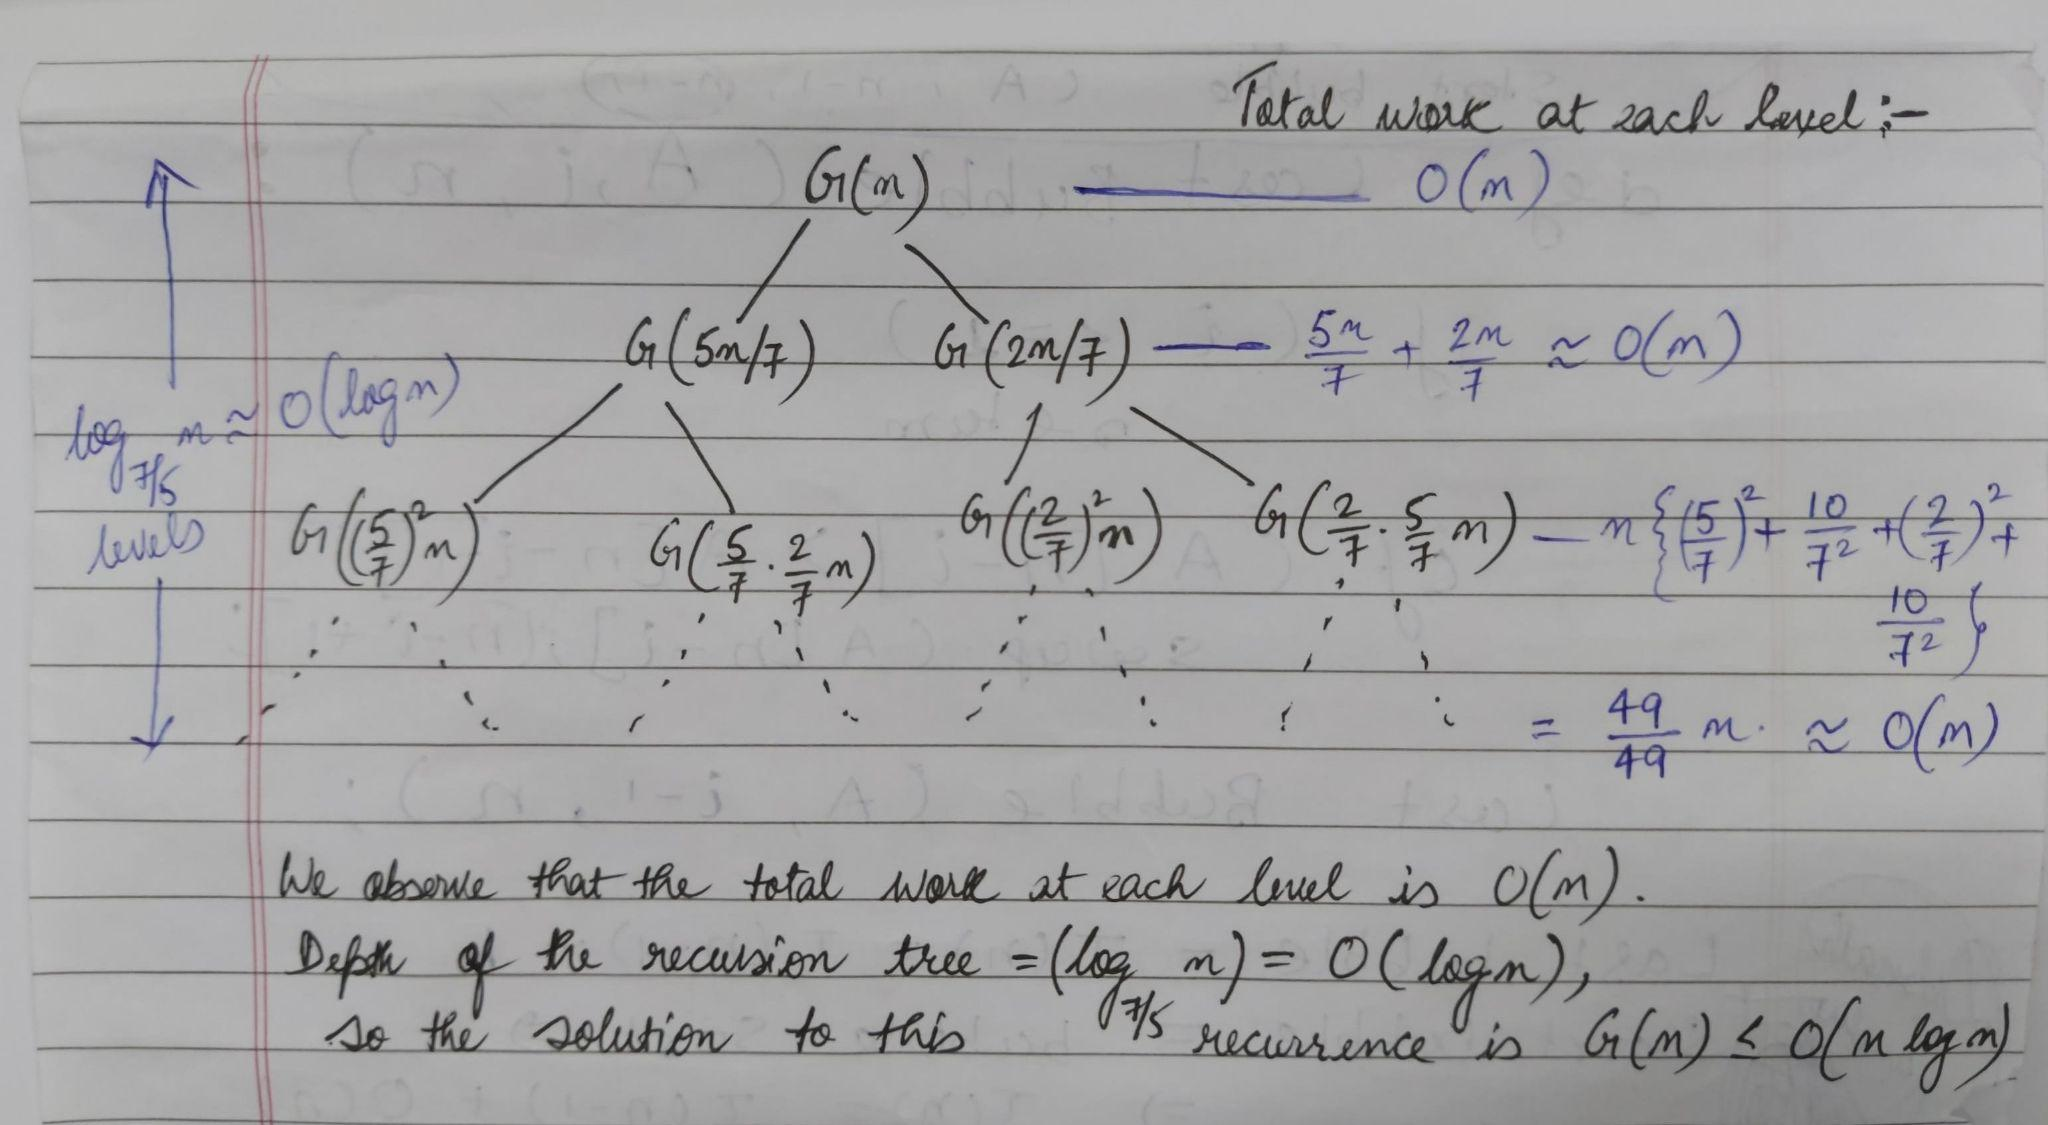 Total work at each level :-
G(n) — O(n)
G(5n/7) G(2n/7) — 5n/7 + 2n/7 ≈ O(n)
log_{7/5} n ≈ O(log n)
levels
G((5/7)²n) G(5/7 · 2/7 n) G((2/7)²n) G(2/7 · 5/7 n) — n{(5/7)² + 10/7² + (2/7)² +
10/7²}
= 49/49 n. ≈ O(n)
We observe that the total work at each level is O(n).
Depth of the recursion tree = (log_{7/5} n) = O(log n),
so the solution to this recurrence is G(n) ≤ O(n log n)